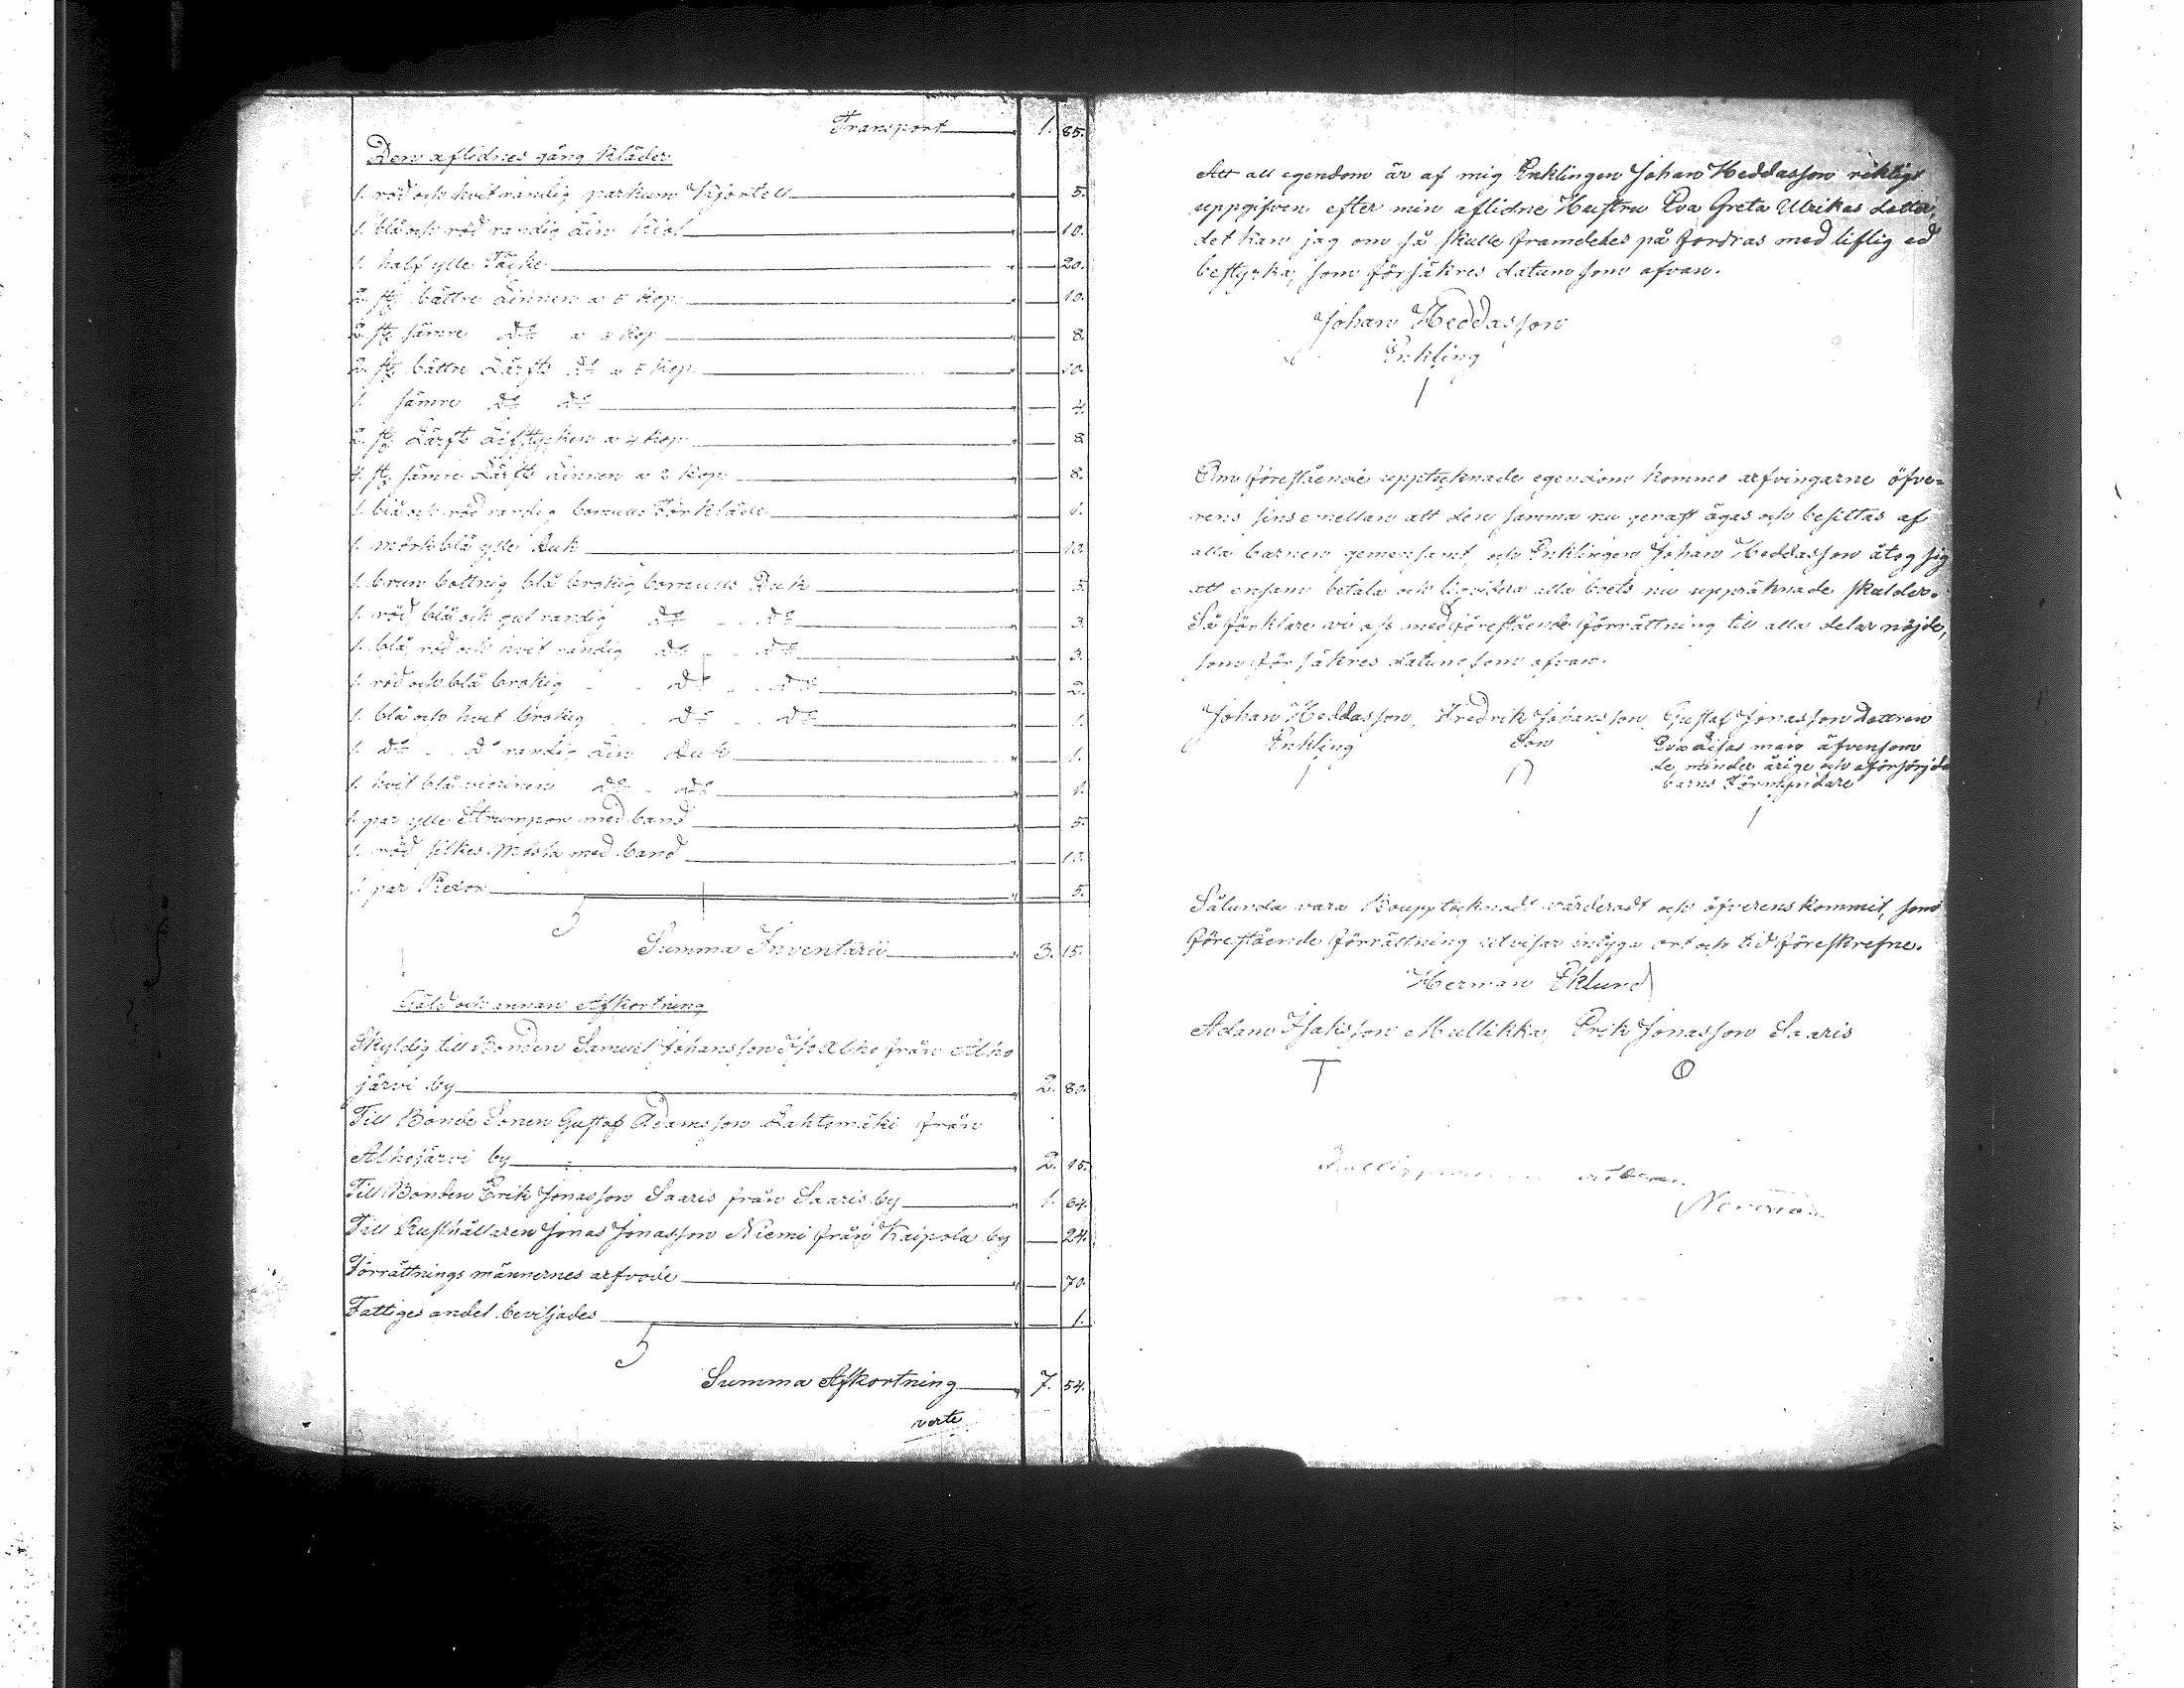 Transport 1. 85.
Den aflidnes gång kläder
1. röd och hvit randig parkum Kjortell 5.
1. blå och röd randig Lin Kiol 10.
1. half ylle Täcke 20.
2. st. bättre Linnen a 5 Kop. 10.
2. st. sämre dto a 4 Kop. 8.
2. st. bättre Lärfts dto a 5 Kop. 10.
1. sämre dto dto 4.
2. st. Lärfts Lifstycken a 4 Kop. 8.
4. st. sämre Lärfts Linnen a 2 Kop. 8.
1. blå och röd randig bomulls Förkläde
1. mörkblå ylle Duk 10.
1. brun bottnig blå brokig bomulls Duk 5.
1. röd, blå och gul randig dto dto 3.
1. blå, röd och hvit randig dto dto 3.
1. röd och blå brokig dto dto 2.
1. blå och hvit brokig dto dto 1.
1. dto dto randig Lin Duk 1.
1. hvit dto dto 1.
1. par ylle Strumpor med band 5.
1. röd silkes Mössa med band 10.
1. par 5.
Summa Inventarii 3. 15.
Gäld och annan Afkortning
Skyldig till Bonden Samuel Johansson Alho från Alho
järvi by 2. 80.
Till Bonde Sonen Gustaf Adamsson Lahtomäki från
Alhojärvi by 2. 15.
Till Bonden Erik Jonasson Saaris från Saaris by 1. 64.
Till Rusthållaren Jonas Jonasson Niemi från Kaipola by 24.
Förrättnings männernes arfvode 70.
Fattiges andel beviljades 1.
Summa Afkortning 7. 54.
verte
Att all egendom är af mig Enklingen Johan Heddasson riktigt
uppgifven efter min aflidne Hustru Eva Greta Ulrikas dotter,
det kan jag om så skulle framdeles på fordras med liflig ed
bestyrka, som försäkres datum som ofvan.
Johan Heddasson
Enkling
Om föreståënde upptecknade egendom kommo arfvingarne öfve-
rens sins emellan att den samma nu genast ägas och besittas af
alla barnen gemensamt, och Enklingen Johan Heddasson åtog sig
att ensam betala och liqvidera alla boets nu uppräknade skulder.
Så förklare vi oss med föreståënde förrättning till alla delar nöjde,
som försäkres datum som ofvan.
Johan Heddasson, Fredrik Johansson, Gustaf Jonasson Dottren
Enkling Son Eva Lisas man äfvensom
de minder årige och oförsörjda
barns Förmyndare
Sålunda vara Bouppteknadt värderadt och öfverenskommit, som
föreståënde förrättning utvisar intyga ort och tid föreskrefne.
Herman Eklund
Adam Isaksson Mullikka, Erik Jonasson Saaris